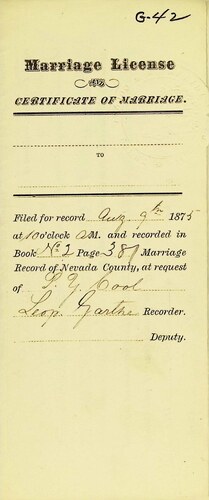 G-42
Marriage License
AND
CERTIFICATE OF MARRIAGE.
TO
Filed for record Aug. 9th 1875
at 10 o'clock A M. and recorded in
Book No. 2 Page 381 Marriage
Record of Nevada County, at request
of S. G. Cool
Leop. Garthe Recorder.
Deputy.